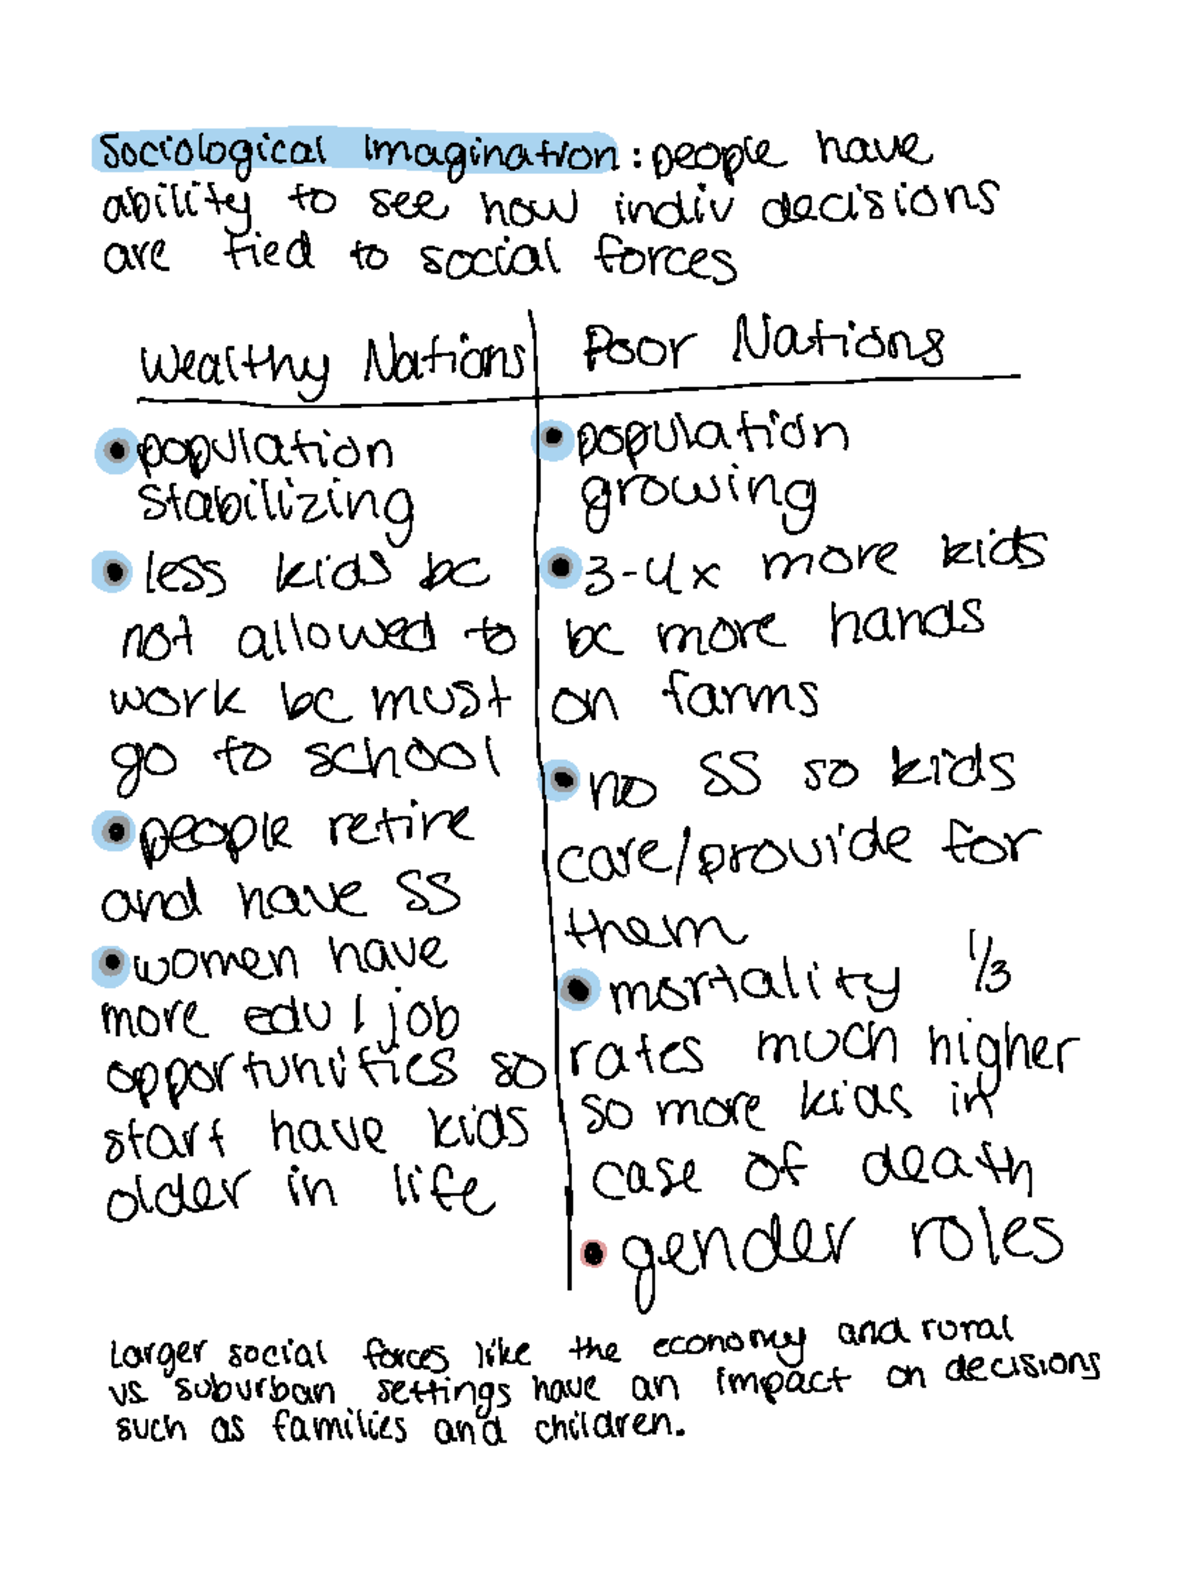 Sociological Imagination: people have
ability to see how indiv decisions
are tied to social forces
Wealthy Nations
population
stabilizing
less kids bc
not allowed to
work bc must
go to school
people retire
and have SS
women have
more edu / job
opportunities so
start have kids
older in life
Poor Nations
population
growing
3-4x more kids
bc more hands
on farms
no SS so kids
care/provide for
them
mortality 1/3
rates much higher
so more kids in
case of death
gender roles
Larger social forces like the economy and rural
vs suburban settings have an impact on decisions
such as families and children.